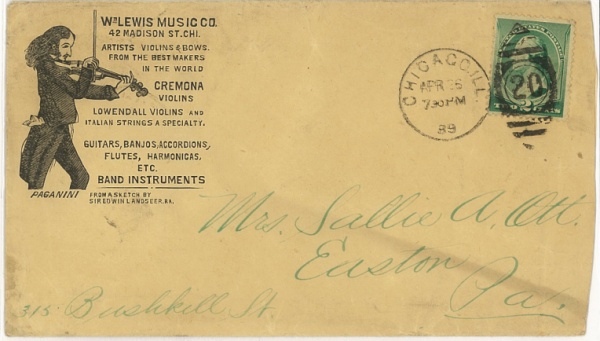 Wm LEWIS MUSIC CO.
42 MADISON ST. CHI.
ARTISTS VIOLINS & BOWS.
FROM THE BEST MAKERS
IN THE WORLD
CREMONA
VIOLINS
LOWENDALL VIOLINS AND
ITALIAN STRINGS A SPECIALTY.
GUITARS, BANJOS, ACCORDIONS,
FLUTES, HARMONICAS,
ETC.
BAND INSTRUMENTS
PAGANINI
FROM A SKETCH BY
SIR EDWIN LANDSEER, RA.
CHICAGO, ILL.
APR
7 30 PM
89
20
Mrs. Sallie A. Ott.
Easton
Pa.
315 Bushkill St.